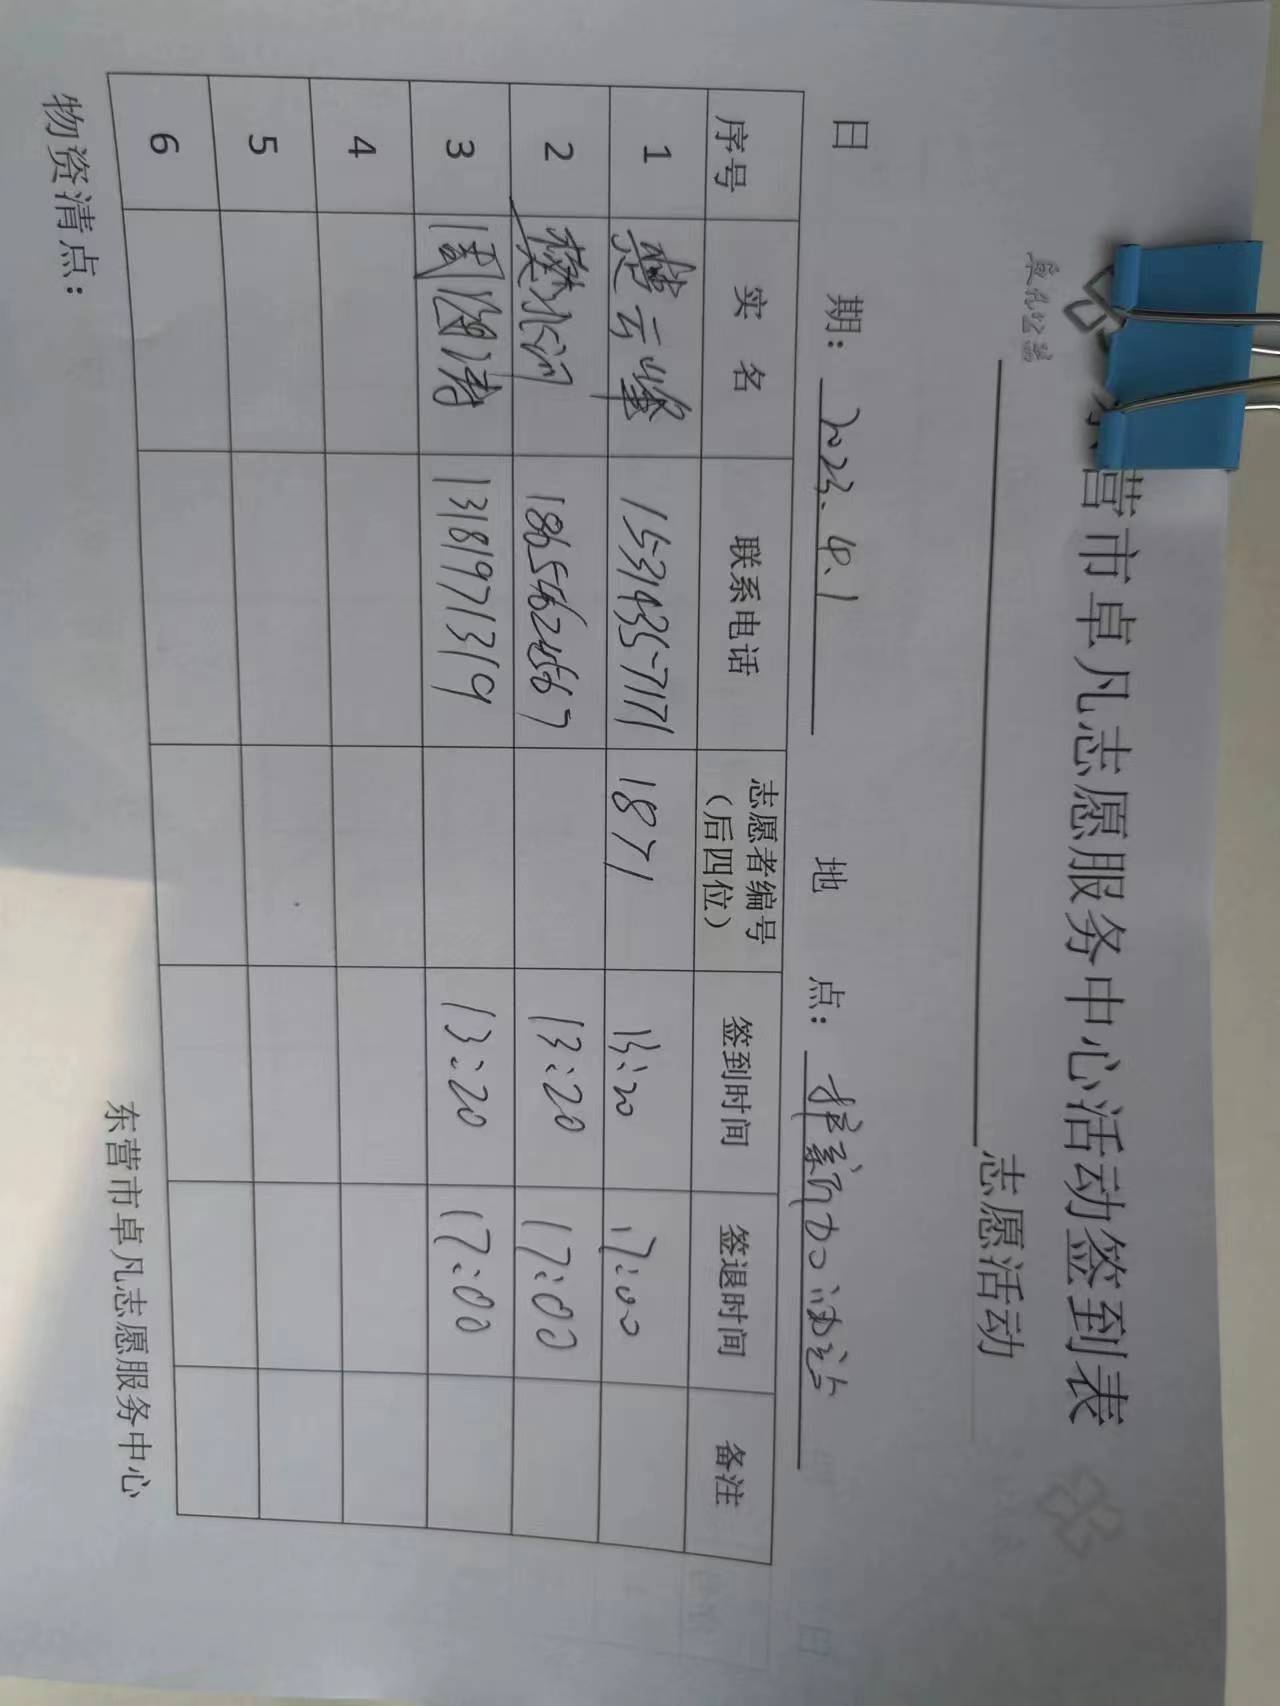 营市卓凡志愿服务中心活动签到表
志愿活动
日 期： 2023.4.1 地 点：
序号 实 名 联系电话 志愿者编号（后四位） 签到时间 签退时间 备注
1 楚云峰 15314357171 1871 13:20 17:00
2 18654624567 13:20 17:00
3 13181971319 13:20 17:00
4
5
6
物资清点：
东营市卓凡志愿服务中心